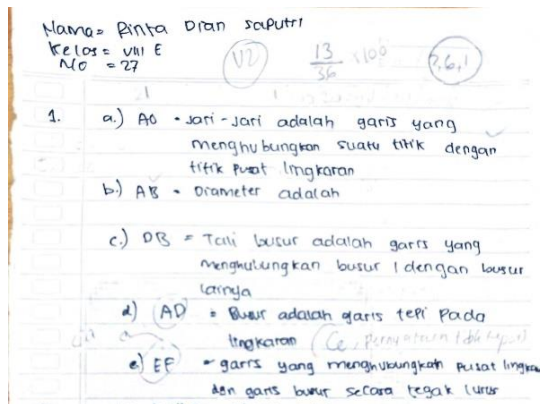 Nama = Rinta Dian Saputri
Kelas = VIII E
No = 27
V2
13/36 x 100
36,1
1. a.) AO = Jari-Jari adalah garis yang
menghubungkan suatu titik dengan
titik pusat lingkaran
b.) AB = Diameter adalah
c.) DB = Tali busur adalah garis yang
menghubungkan busur 1 dengan busur
lainya
d) AD = Busur adalah garis tepi pada
lingkaran
e) EF = garis yang menghubungkan pusat lingka
dan garis busur secara tegak lurus